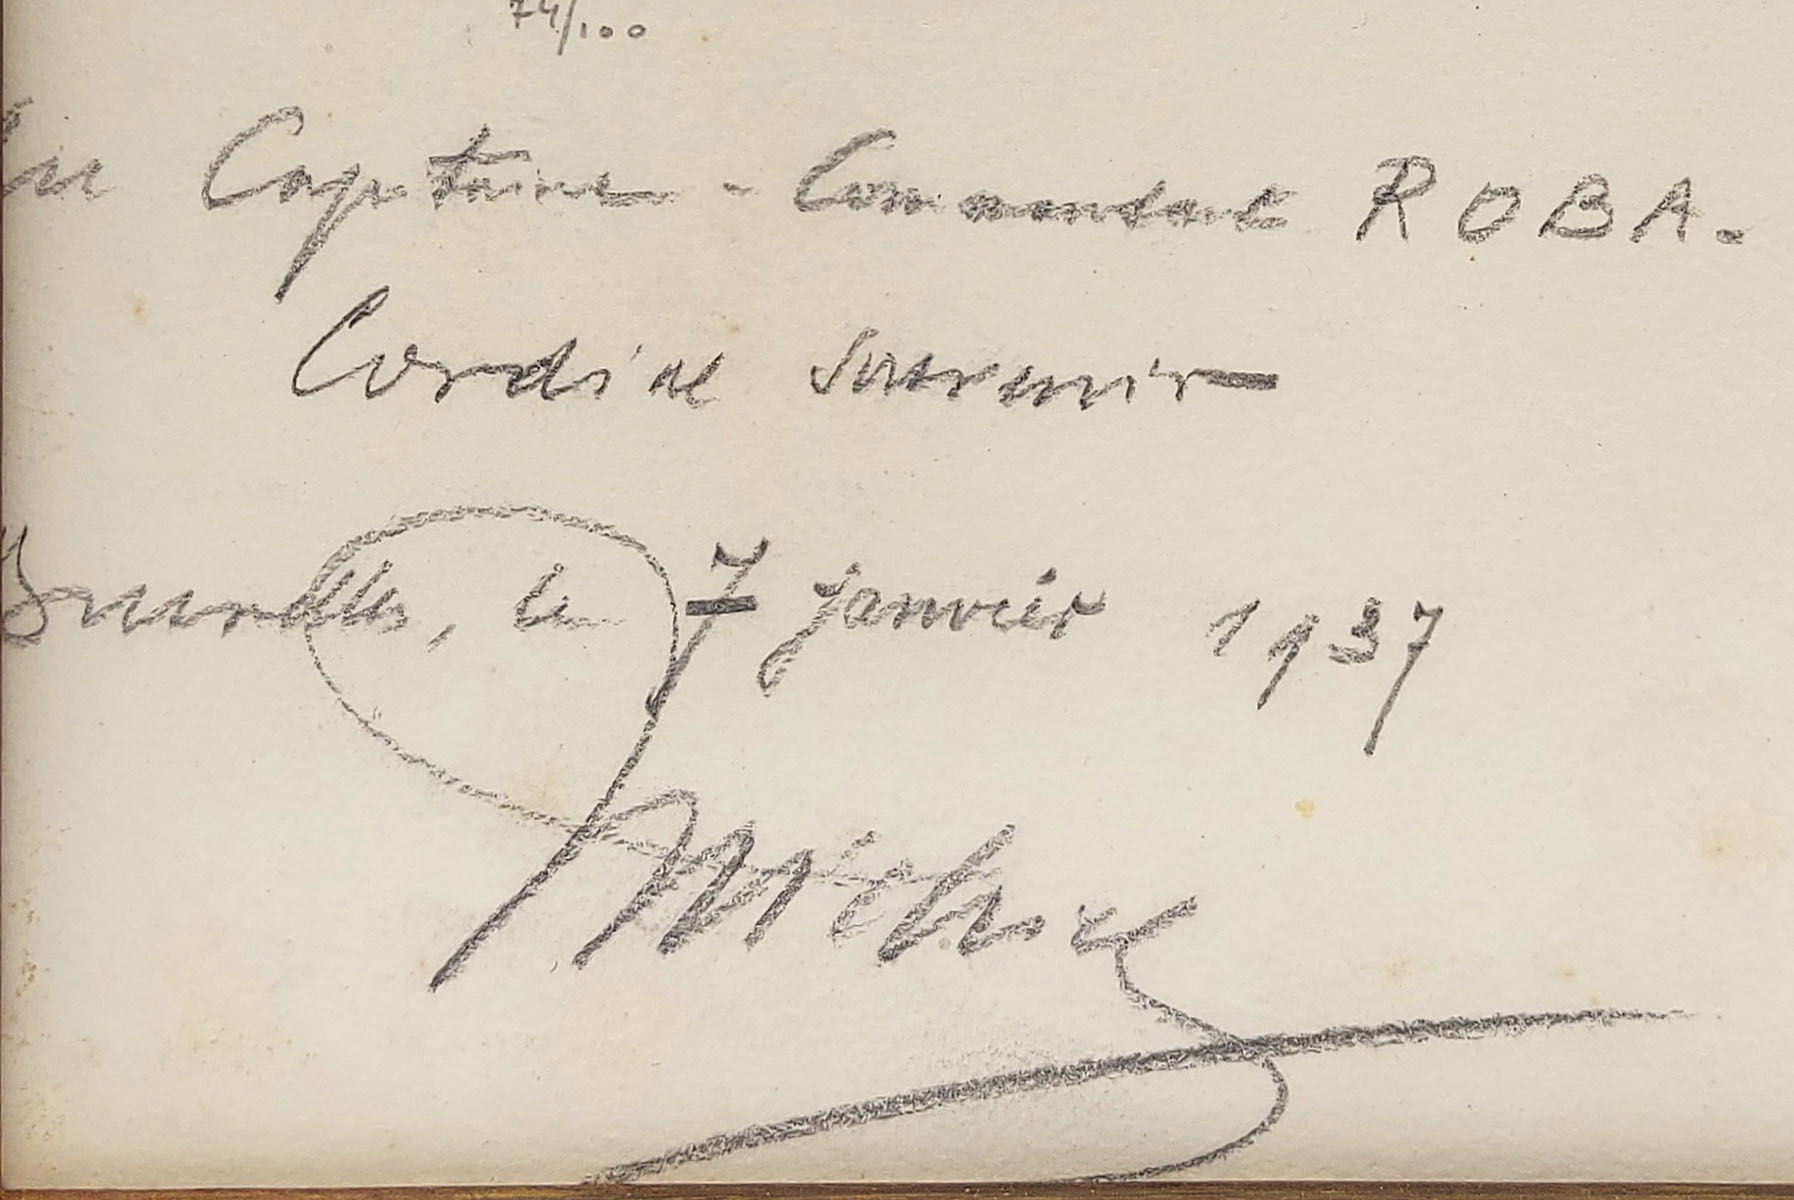 74/100
Au Capitaine - Commandant ROBA.
Cordial souvenir
Bruxelles, le 7 janvier 1937